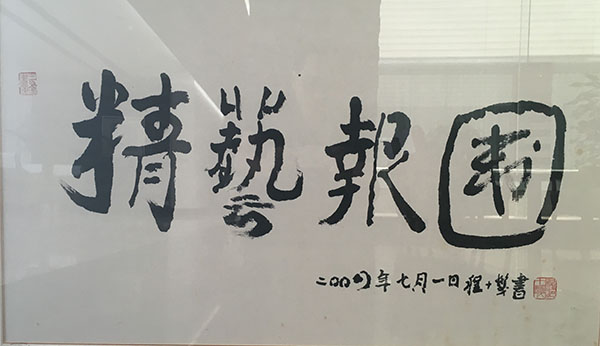 精藝報國
二〇〇四年七月一日程十髮書